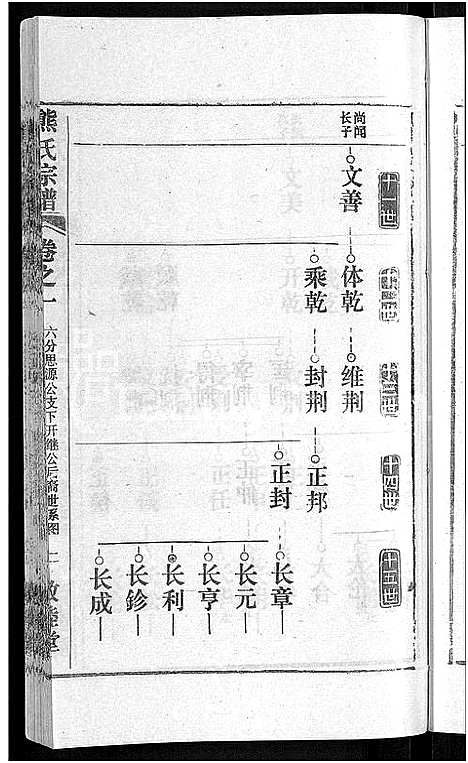 尚闻
长子
十一世
文善
体乾
乘乾
维荆
封荆
十四世
正邦
正封
十五世
长章
长元
长亨
长利
长鉁
长成
熊氏宗谱
卷之一
六分思源公支下开继公后裔世系图
敦睦堂